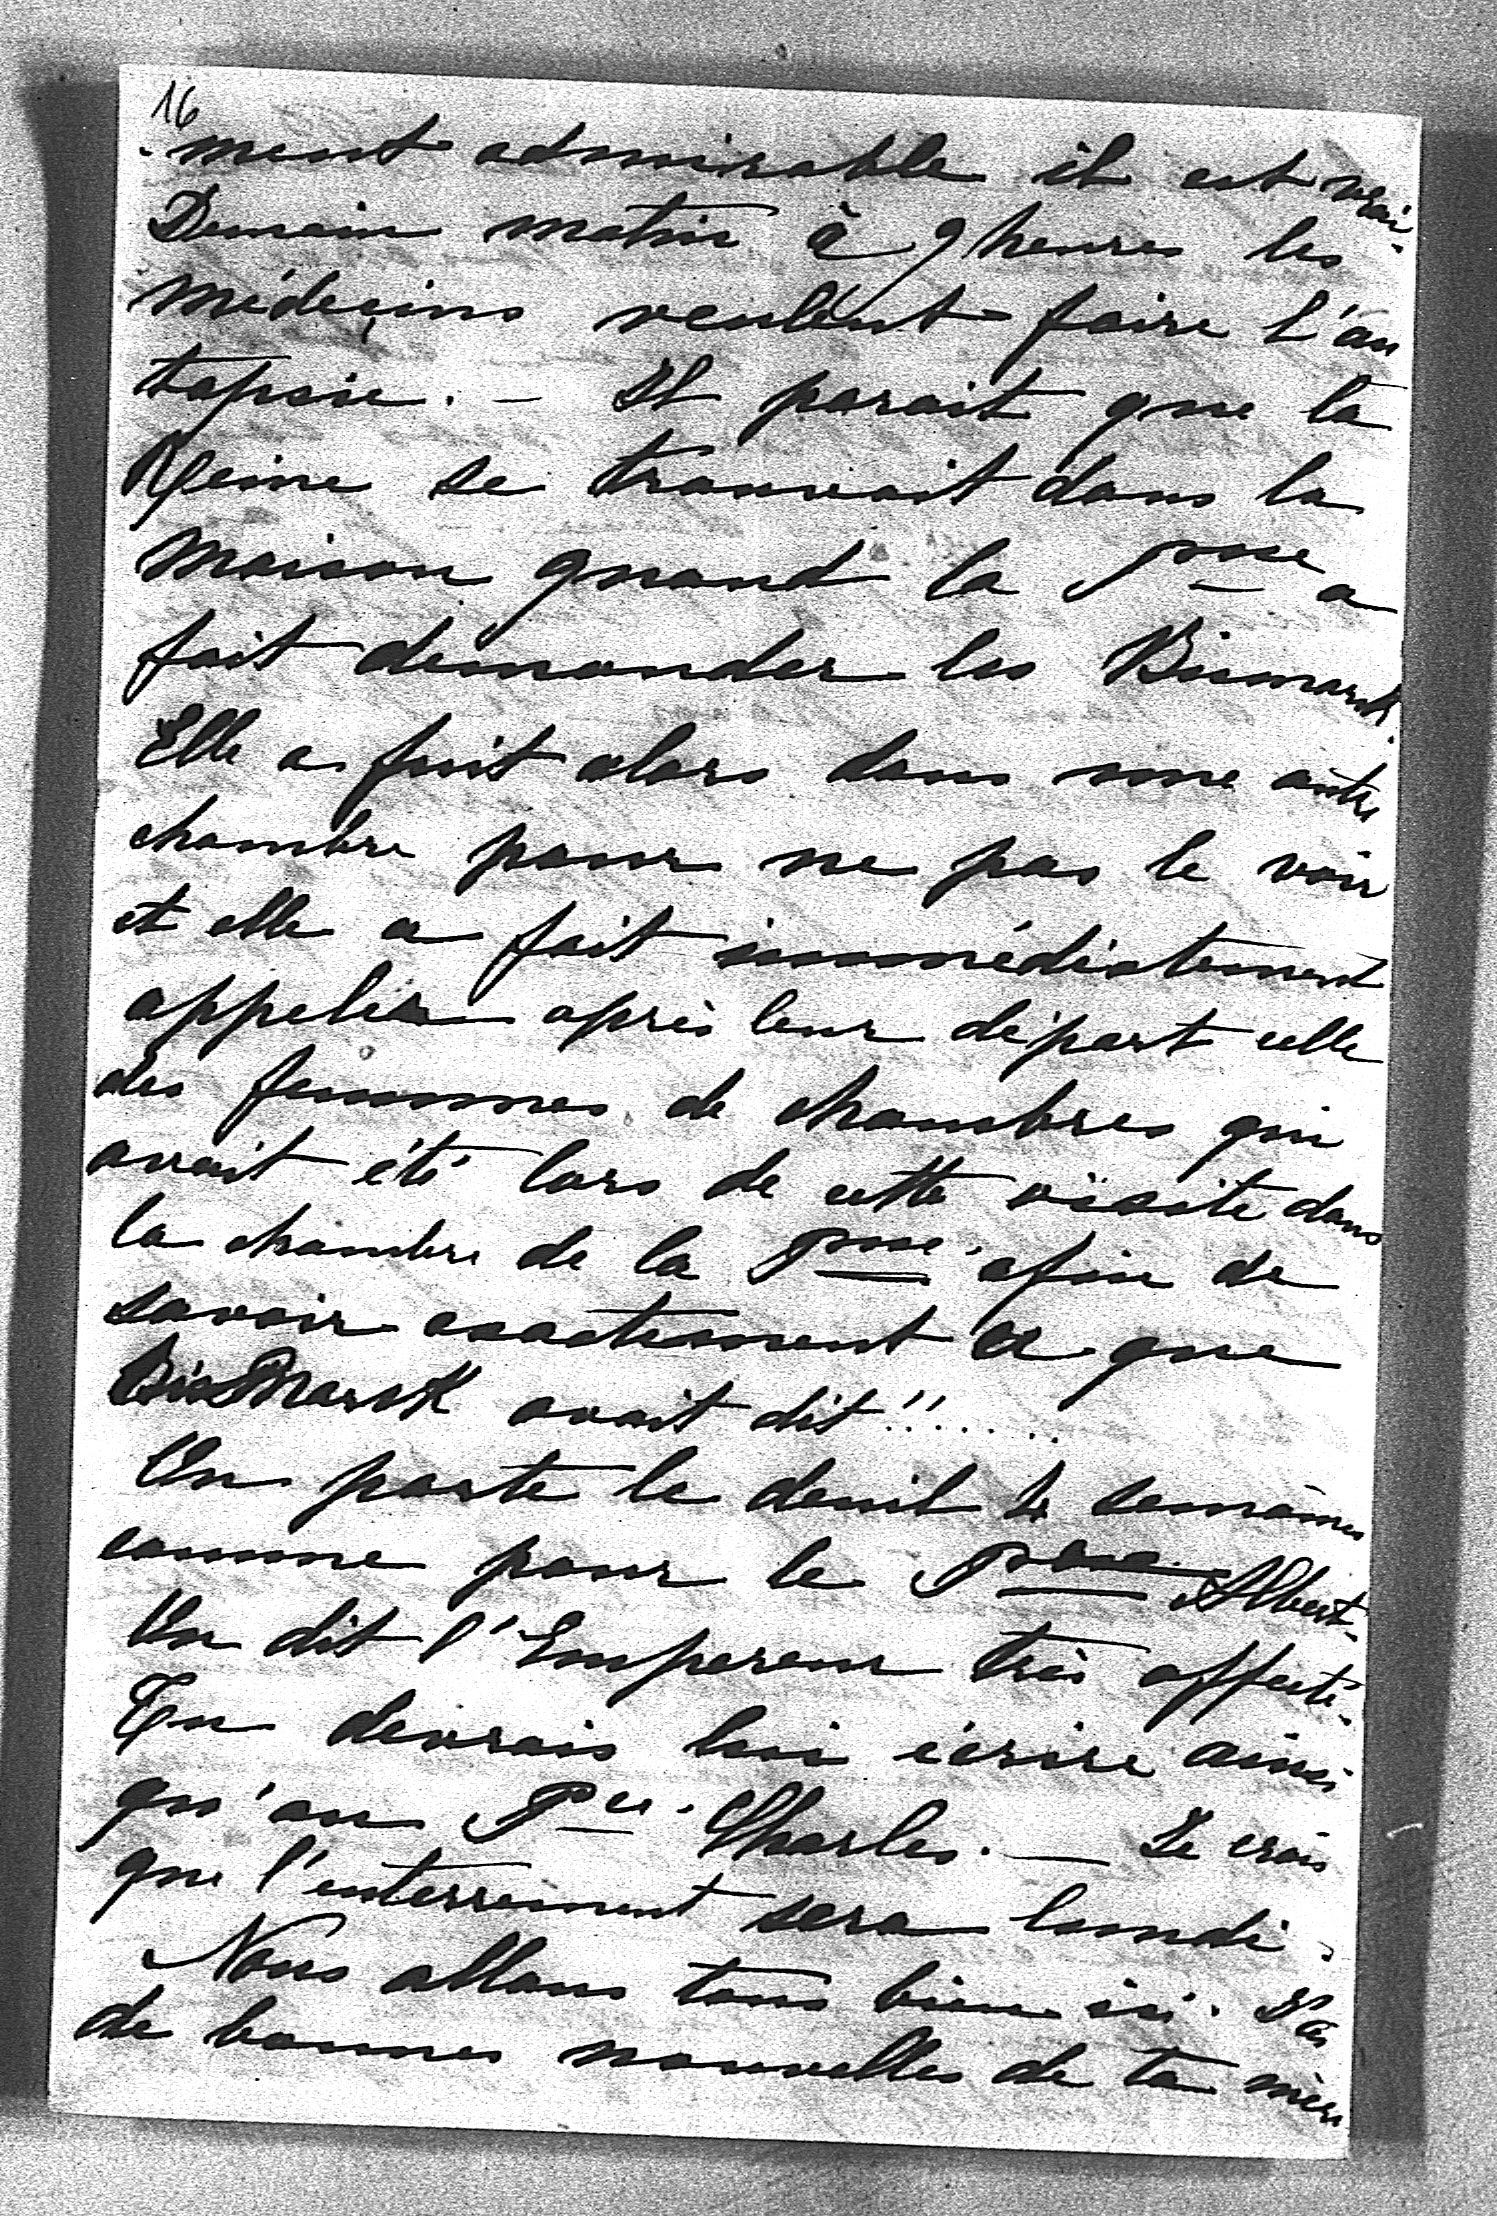 16
-ment admirable il est vrai-
Demain matin à 9 heures les
médecins veulent faire l'au
topsie. — Il parait que la
Reine se trouvait dans la
maison quand la Psse a
fait demander les Bismarck.
Elle a fuit alors dans une autre
chambre pour ne pas le voir
et elle a fait immédiatement
appeler après leur départ celle
des femmes de chambres qui
avait été lors de cette visite dans
la chambre de la Psse. afin de
savoir exactement ce que
Bismarck avait dit!!.....
On porte le deuil 4 semaines
comme pour le Pce Albert.
On dit l'Empereur très affecté.
Tu devrais lui écrire ainsi
qu'au Pce. Charles. — Je crois
que l'enterrement sera lundi.
Nous allons tous bien ici. J'ai
de bonnes nouvelles de ta mère